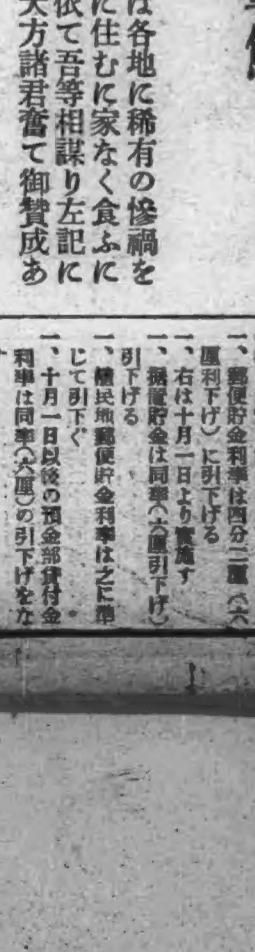 は各地に稀有の惨禍を
に住むに家なく食ふに
依て吾等相謀り左記に
大方諸君奮て御賛成あ
一、郵便貯金利率は四分二厘(六
厘利下げ)に引下げる
一、右は十月一日より実施す
一、据置貯金は同率(六厘引下げ)
引下げる
一、植民地郵便貯金利率は之に準
じて引下ぐ
一、十月一日以後の預金部貸付金
利率は同率(六厘)の引下げをな